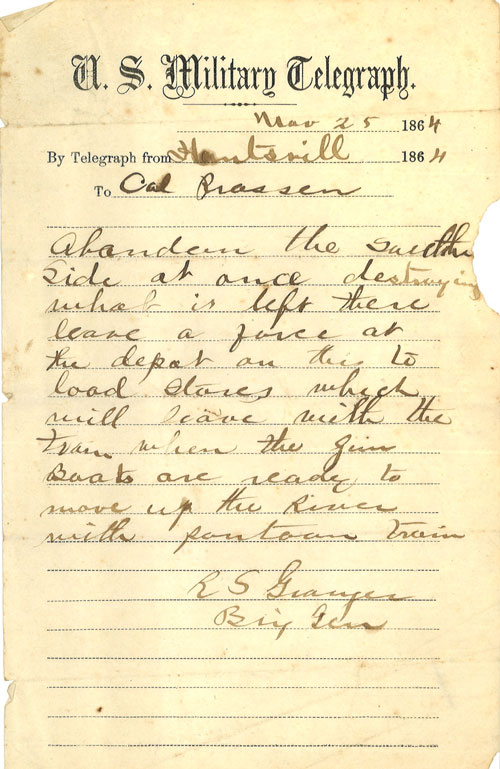 U. S. Military Telegraph.
Nov 25 1864
By Telegraph from Huntsvill 1864
To Col
Abandon the South
Side at once destroying
what is left there
leave a force at
the depot on this to
load stores which
will leave with the
train when the Gun
Boats are ready to
move up the River
with pontoon train
R S Granger
Brig Gen